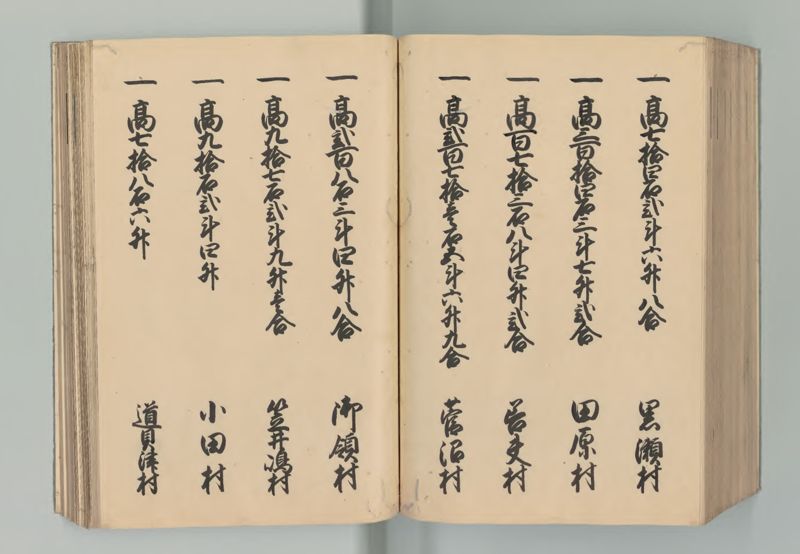 一 高七拾四石弐斗六升八合 黒瀬村
一 高三百拾四石三斗七升弐合 田原村
一 高百七拾三石八斗四升弐合 村
一 高弐百七拾壱石五斗六升九合 菅沼村
一 高弐百八石三斗四升八合 御領村
一 高九拾七石弐斗九升壱合 笠井嶋村
一 高九拾石弐斗四升 小田村
一 高七拾八石六升 道貝津村